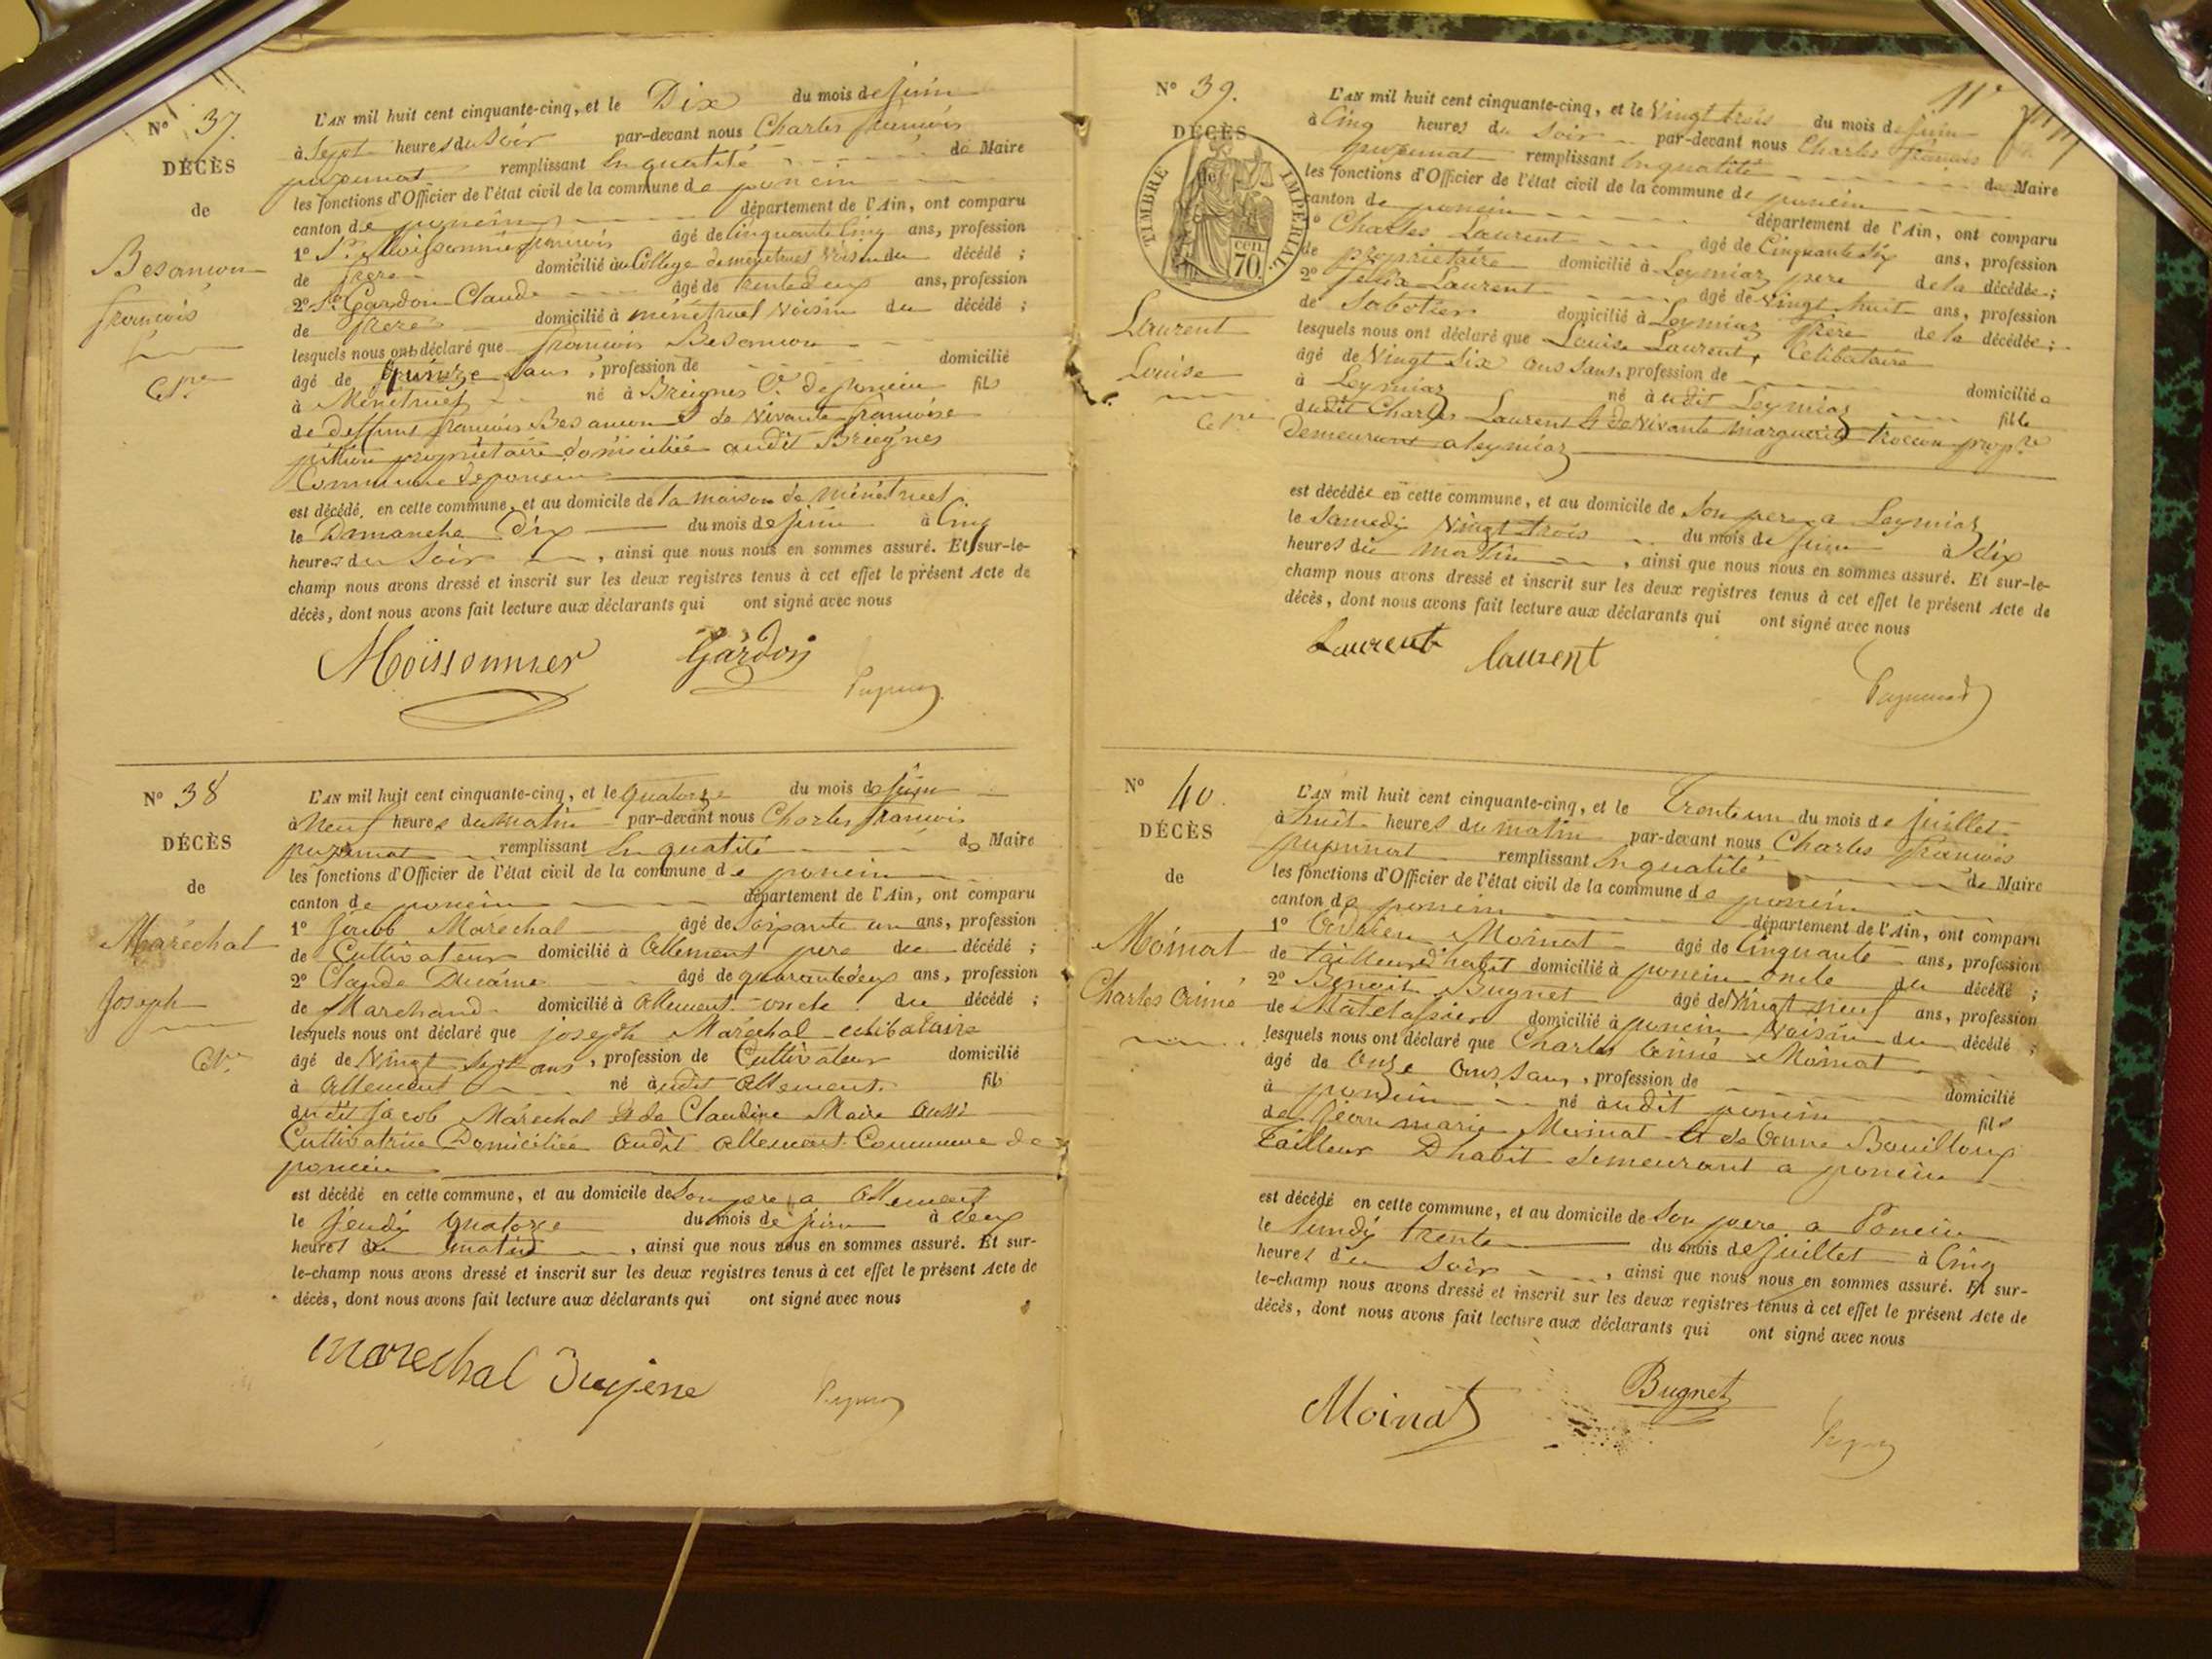 N° 37.
DÉCÈS
de
Besançon
françois
L'AN mil huit cent cinquante-cinq, et le Dix du mois de juin
à Sept heures du Soir par-devant nous Charles françois
remplissant En qualité de Maire
les fonctions d'Officier de l'état civil de la commune de poncin
canton de poncin département de l'Ain, ont comparu
1° Moissonnier françois âgé de Cinquante Cinq ans, profession
de frere domicilié au College de menetruel Voisin du décédé ;
2° Gardon Claude âgé de trente deux ans, profession
de frere domicilié à ménétruel Voisin du décédé ;
lesquels nous ont déclaré que françois Besançon
âgé de quinze ans, profession de domicilié
à Ménétruel né à Breignes Cne de poncin fils
de deffunt françois Besançon & de Vivante françoise
propriétaire domiciliée audit Breignes
Commune de poncin
est décédé en cette commune, et au domicile de la maison de Ménétruel
le Dimanche Dix du mois de juin à Cinq
heures du Soir, ainsi que nous nous en sommes assuré. Et sur-le-
champ nous avons dressé et inscrit sur les deux registres tenus à cet effet le présent Acte de
décès, dont nous avons fait lecture aux déclarants qui ont signé avec nous
Moissonnier Gardon
N° 38
DÉCÈS
de
Maréchal
Joseph
L'AN mil huit cent cinquante-cinq, et le quatorze du mois de juin
à Neuf heures du matin par-devant nous Charles françois
remplissant En qualité de Maire
les fonctions d'Officier de l'état civil de la commune de poncin
canton de poncin département de l'Ain, ont comparu
1° Jacob Maréchal âgé de Soixante un ans, profession
de Cultivateur domicilié à Allement pere du décédé ;
2° Claude âgé de quarante deux ans, profession
de Marchand domicilié à Allement oncle du décédé ;
lesquels nous ont déclaré que joseph Maréchal celibataire
âgé de Vingt Sept ans, profession de Cultivateur domicilié
à Allement né audit Allement fils
dudit Jacob Maréchal & de Claudine Maire aussi
Cultivatrice Domiciliée audit Allement Commune de
poncin
est décédé en cette commune, et au domicile de Son pere a Allement
le jeudi quatorze du mois de juin à deux
heures du matin, ainsi que nous nous en sommes assuré. Et sur-
le-champ nous avons dressé et inscrit sur les deux registres tenus à cet effet le présent Acte de
décès, dont nous avons fait lecture aux déclarants qui ont signé avec nous
marechal
N° 39.
11e
DÉCÈS
de
TIMBRE IMPÉRIAL
70 cen
Laurent
Louise
L'AN mil huit cent cinquante-cinq, et le Vingt trois du mois de juin
à Cinq heures du Soir par-devant nous Charles françois
remplissant En qualité de Maire
les fonctions d'Officier de l'état civil de la commune de poncin
canton de poncin département de l'Ain, ont comparu
1° Charles Laurent âgé de Cinquante Six ans, profession
de propriétaire domicilié à Leymiaz pere de la décédée ;
2° felix Laurent âgé de Vingt huit ans, profession
de Sabotier domicilié à Leymiaz frere de la décédée ;
lesquels nous ont déclaré que Louise Laurent, Celibataire
âgé de Vingt Six ans Sans, profession de domiciliée
à Leymiaz né audit Leymiaz fille
dudit Charles Laurent & de Vivante Marguerite propre
demeurant a Leymiaz
est décédée en cette commune, et au domicile de Son pere a Leymiaz
le Samedi Vingt trois du mois de juin à dix
heures du matin, ainsi que nous nous en sommes assuré. Et sur-le-
champ nous avons dressé et inscrit sur les deux registres tenus à cet effet le présent Acte de
décès, dont nous avons fait lecture aux déclarants qui ont signé avec nous
Laurent laurent
N° 40.
DÉCÈS
de
Moinat
Charles Aimé
L'AN mil huit cent cinquante-cinq, et le Trente un du mois de juillet
à huit heures du matin par-devant nous Charles françois
remplissant En qualité de Maire
les fonctions d'Officier de l'état civil de la commune de poncin
canton de poncin département de l'Ain, ont comparu
1° Moinat âgé de Cinquante ans, profession
de tailleur d'habit domicilié à poncin oncle du décédé ;
2° Benoit Bugnet âgé de Vingt neuf ans, profession
de Matelassier domicilié à poncin Voisin du décédé ;
lesquels nous ont déclaré que Charles Aimé Moinat
âgé de Onze ans Sans, profession de domicilié
à poncin né audit poncin fils
de Jean marie Moinat & de Anne Bouilloux
tailleur Dhabit demeurant a poncin
est décédé en cette commune, et au domicile de Son pere a Poncin
le lundi trente du mois de juillet à Cinq
heures du Soir, ainsi que nous nous en sommes assuré. Et sur-
le-champ nous avons dressé et inscrit sur les deux registres tenus à cet effet le présent Acte de
décès, dont nous avons fait lecture aux déclarants qui ont signé avec nous
Moinat Bugnet